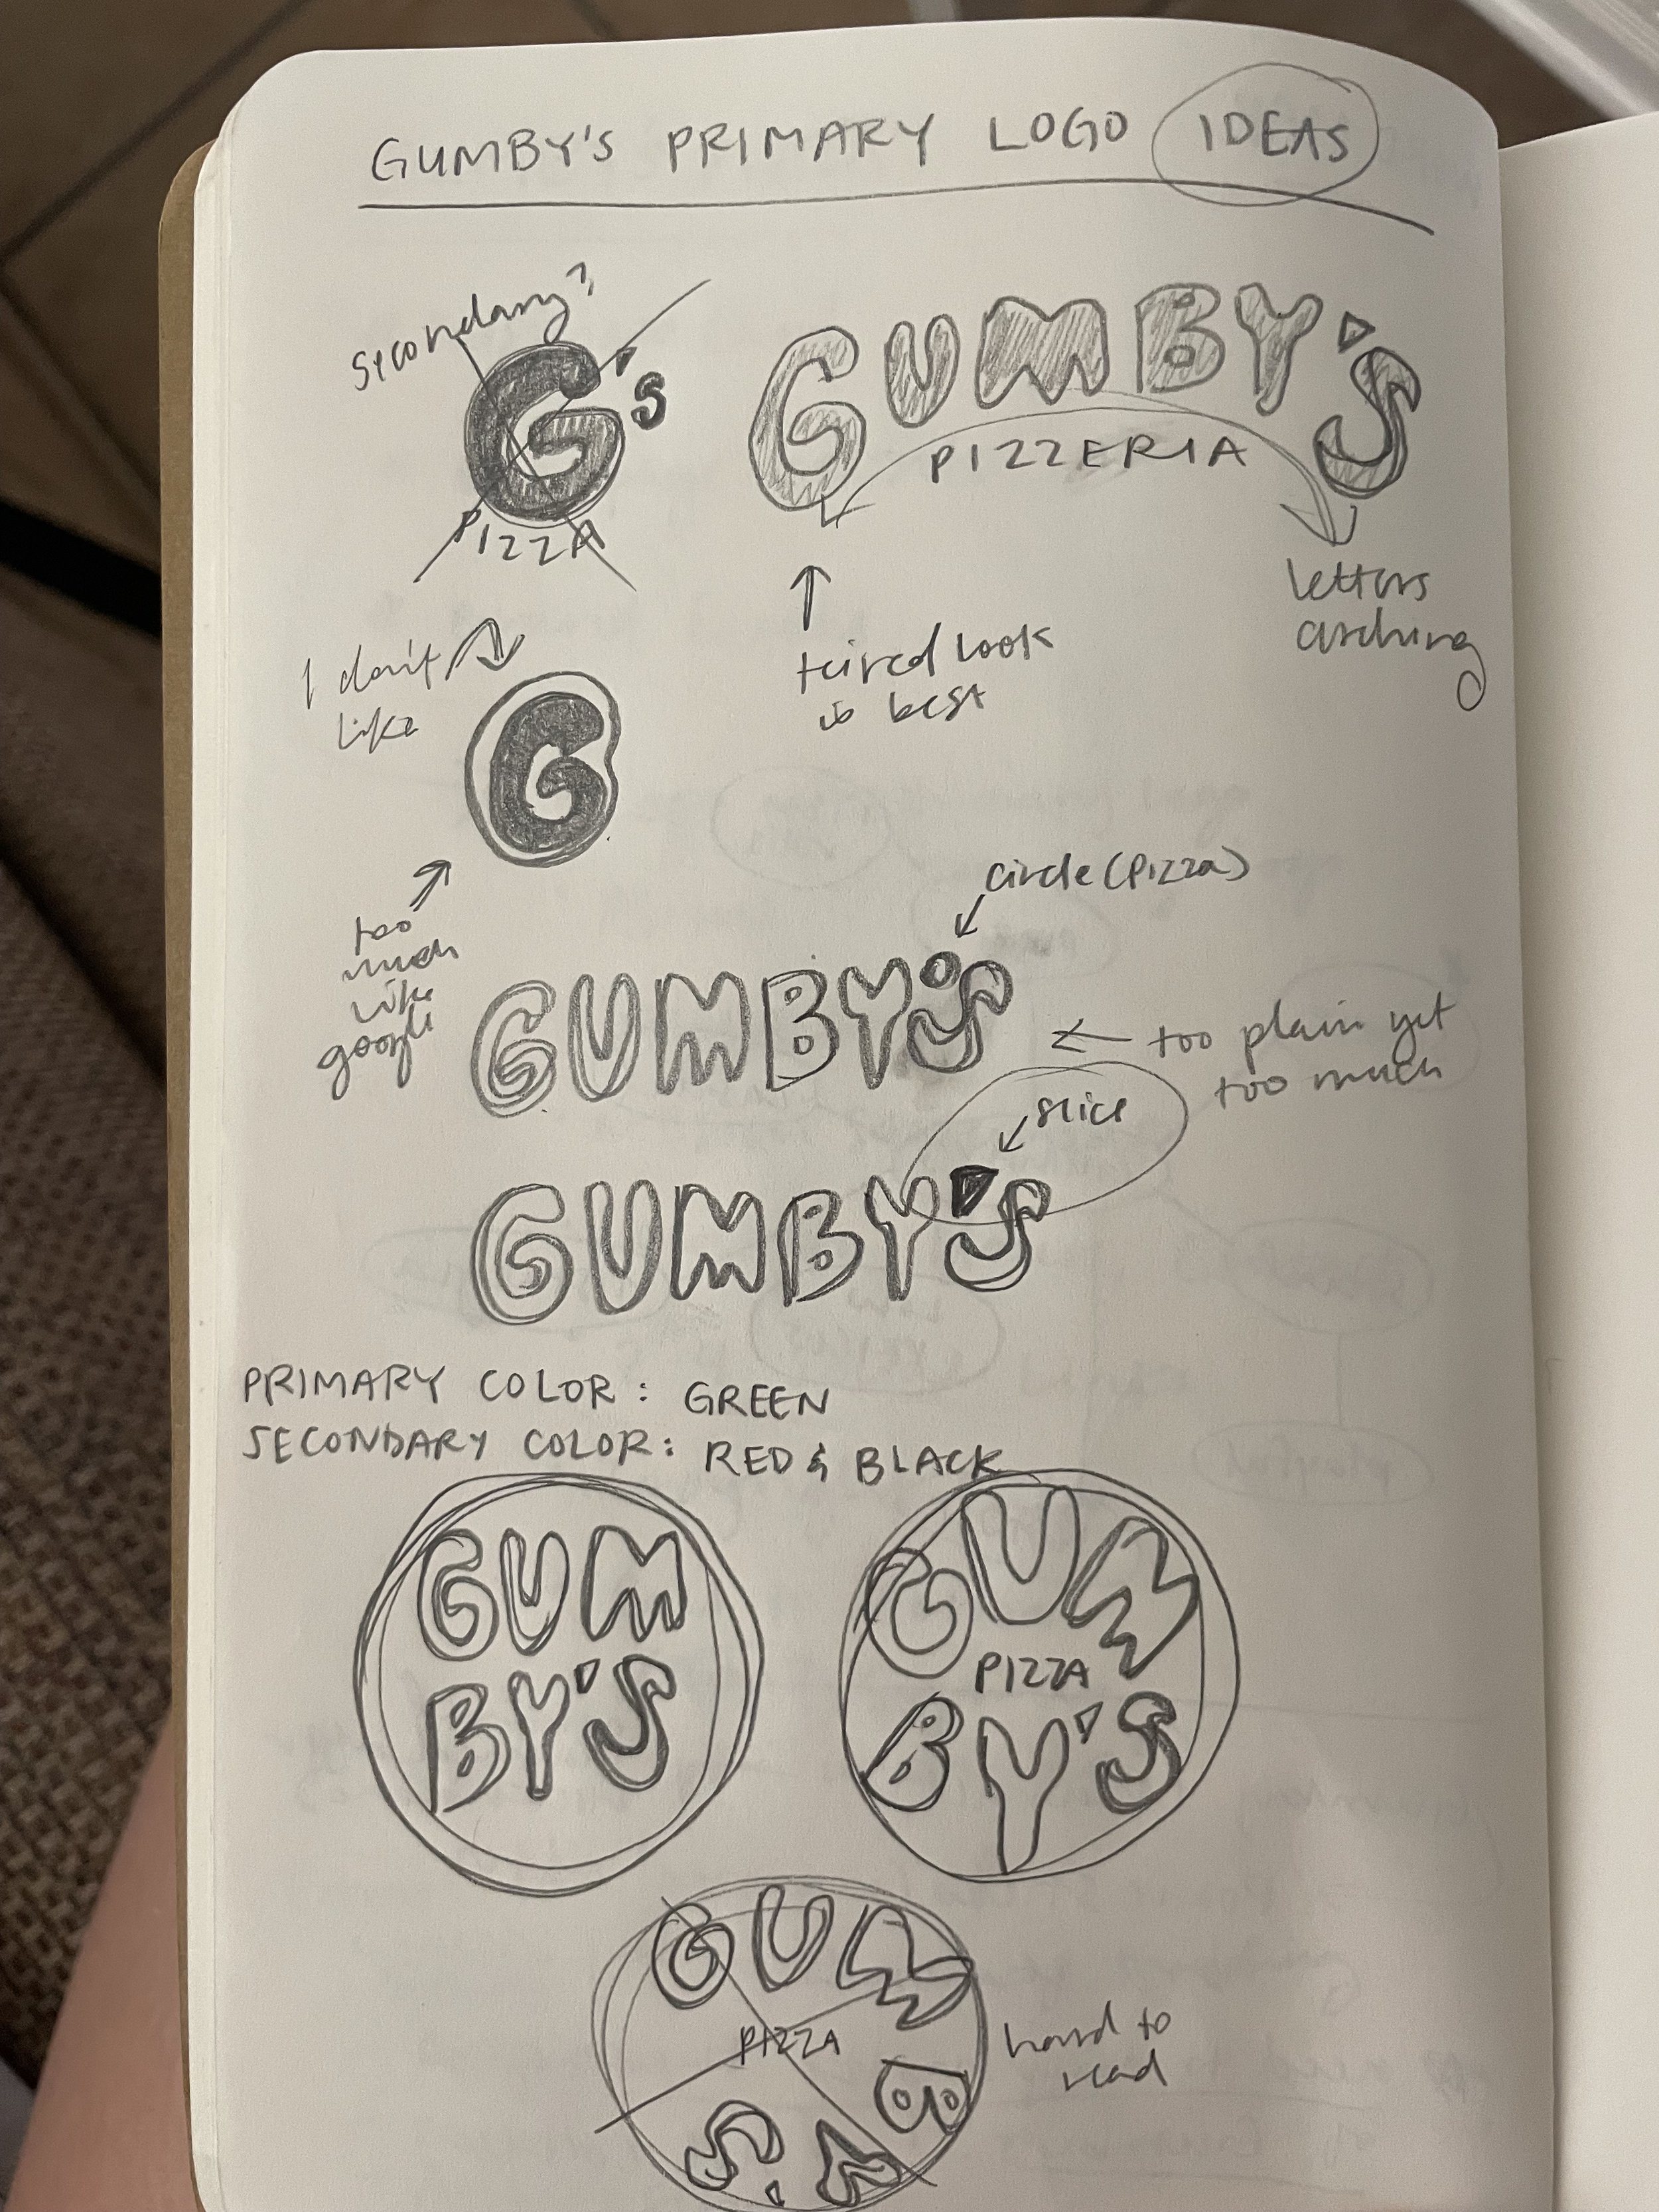 GUMBY'S PRIMARY LOGO IDEAS
secondary?
G's
PIZZA
GUMBY'S
PIZZERIA
letters
arching
teired look
is best
I don't
like
G
too
much
like
google
circle (pizza)
GUMBY'S
too plain yet
too much
slice
GUMBY'S
PRIMARY COLOR: GREEN
SECONDARY COLOR: RED & BLACK
GUM
BY'S
GUM
PIZZA
BY'S
GUM
PIZZA
BY'S
hard to
read